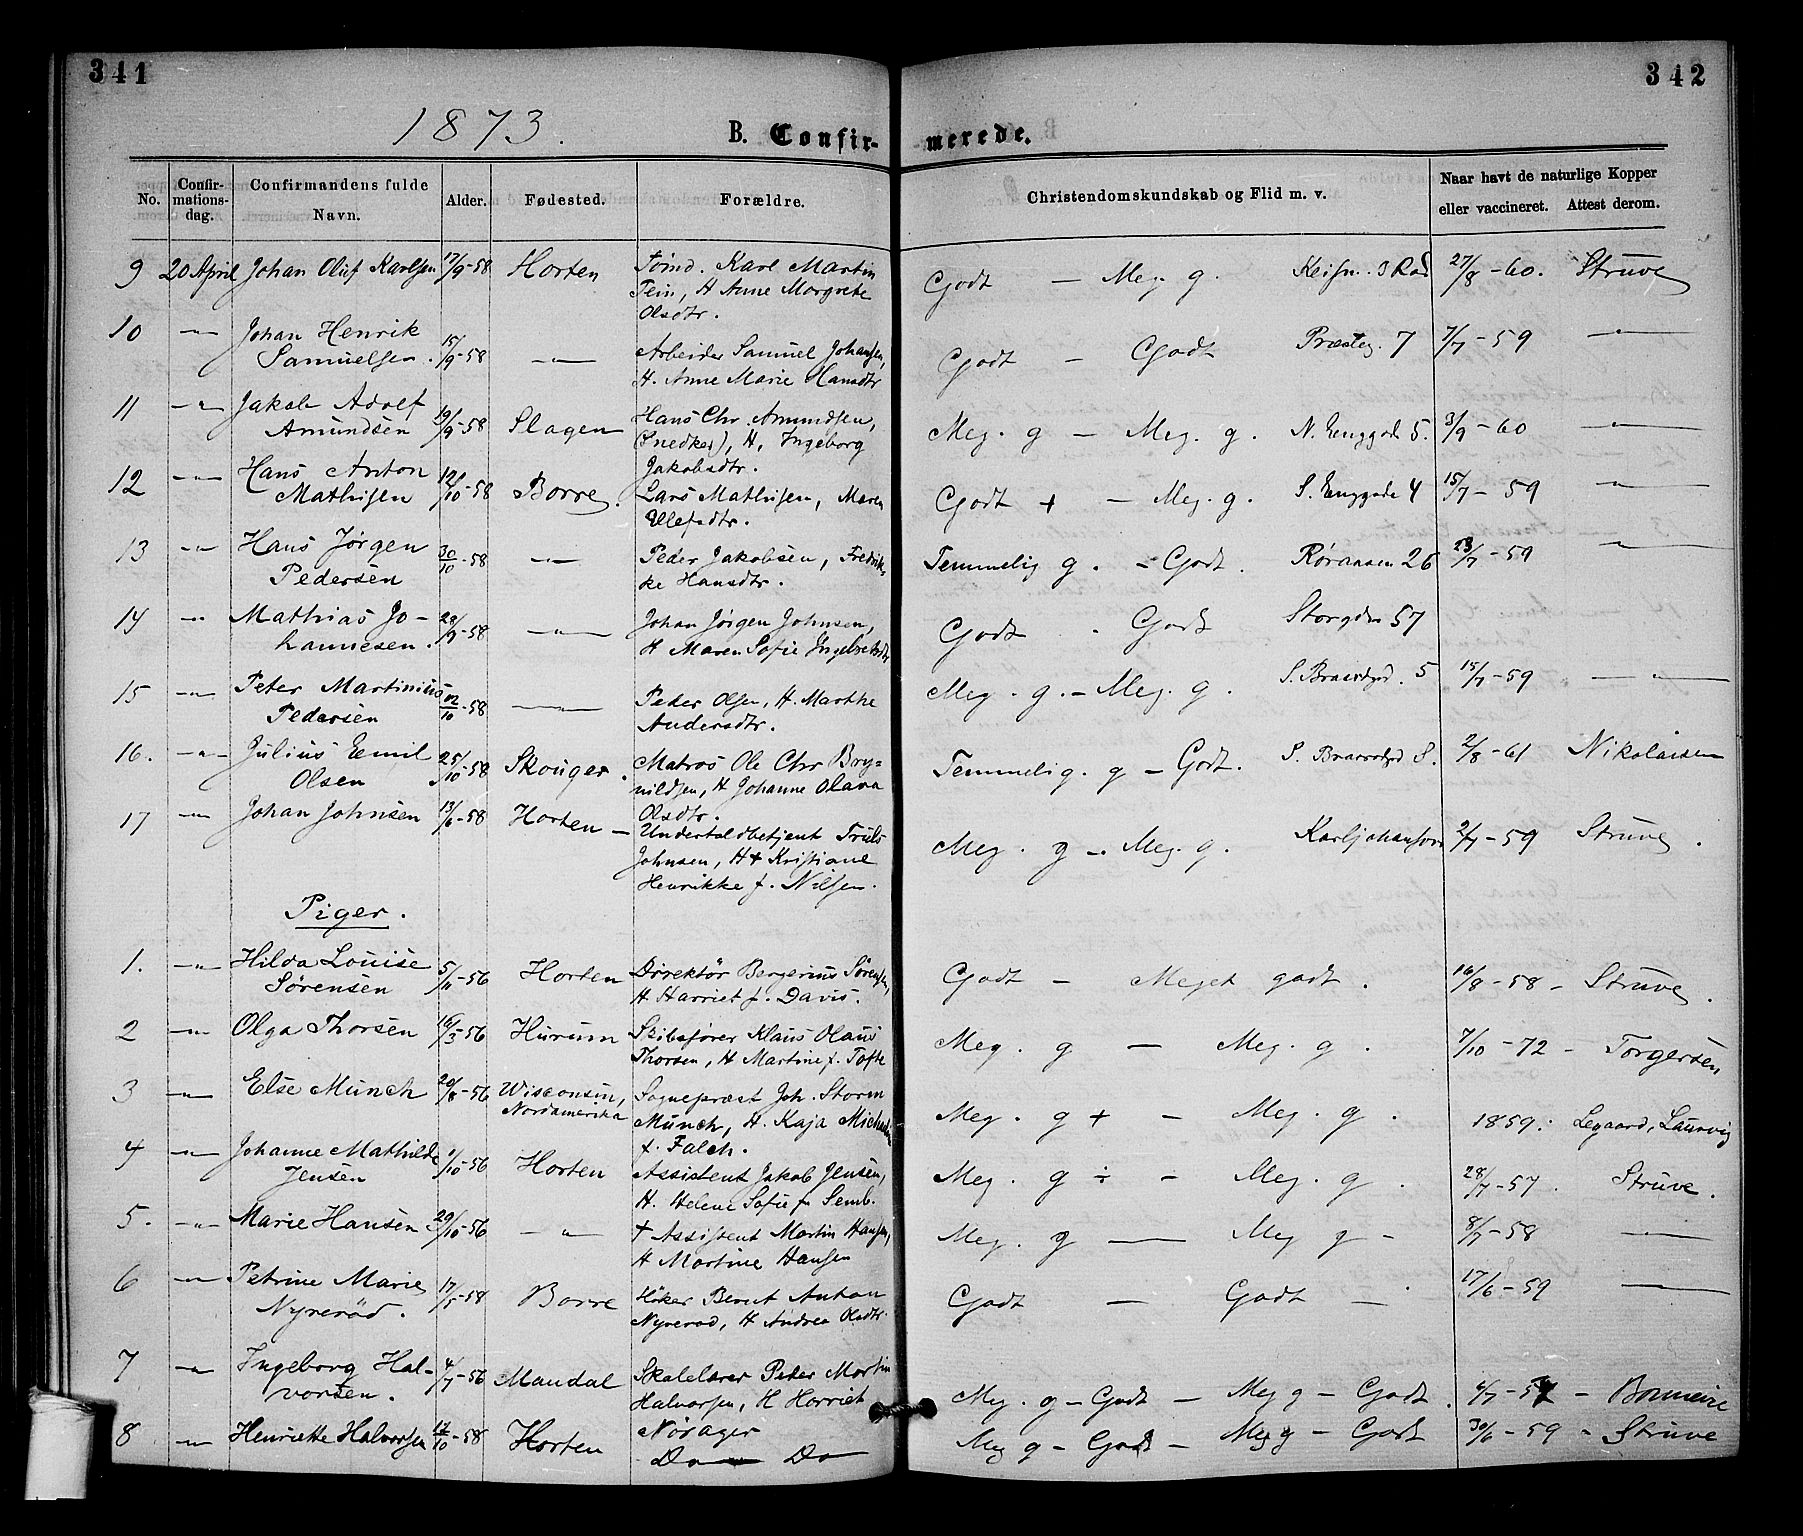 341
342
1873.
B. Confir-
merede.
No.
Confir-
mations-
dag.
Confirmandens fulde
Navn.
Alder.
Fødested.
Forældre.
Christendomskundskab og Flid m. v.
Naar havt de naturlige Kopper
eller vaccineret.
Attest derom.
9 20 April Johan Oluf Karlsen 17/9-58 Horten Tømd. Karl Martin
Tein, H Anne Margrete
Olsdtr.
Godt — Meg. g. 27/8-60. Struve
10 —"— Johan Henrik
Samuelsen. 15/9-58 —"— Arbeider Samuel Johansen,
H. Anne Marie Hansdtr
Godt — Godt Præsteg. 7 7/7-59 —"—
11 —"— Jakob Adolf
Amundsen 19/9-58 Slagen Hans Chr Amundsen,
(Snedker), H, Ingeborg
Jakobsdtr.
Meg. g — Meg. g. N. Enggade 5. 3/9-60 —"—
12 —"— Hans Anton
Mathisen 12/10-58 Borre. Lars Mathisen, Maren
Olefsdtr.
Godt + — Meg. g. S. Enggade 4 15/7-59 —"—
13 —"— Hans Jørgen
Pedersen 30/10-58 —"— Peder Jakobsen, Fredrik-
ke Hansdtr.
Temmelig g. - Godt. Røraasen 26 23/7-59 —"—
14 —"— Mathias Jo-
hannesen. 29/9-58 —"— Johan Jørgen Johnsen,
H Maren Sofie Ingebretsdtr
Godt - Godt Storgden 57
15 —"— Peter Martinius
Pedersen 02/10-58 —"— Peder Olsen, H. Marthe
Andersdtr.
Meg. g. — Meg. g. 5 15/7-59 —"—
16. —"— Julius Emil
Olsen 25/10-58 Skouger. Matros Ole Chr Bry=
nildsen, H Johanne Olava
Olsdtr.
Temmelig. g — Godt. 2/8-61 Nikolaisen
17 —"— Johan Johnsen 13/6-58 Horten — Undertoldbetjent Truls
Johnsen, H+ Kristiane
Henrikke f. Nilsen.
Meg. g -. Meg. g. Karljohansvern 2/7-59 Struve.
Piger.
1. —"— Hilda Louise
Sørensen 5/11-56 Horten Direktør Bergerius Sørensen,
H Harriet f. Davis.
Godt — Meget godt. 16/8-58 - Struve.
2 —"— Olga Thorsen 16/3-56 Hurum Skibsfører Klaus Olaus
Thorsen, H Martine f. Tofte
Meg. g — Meg. g. 7/10-72 - Torgersen
3 —"— Else Munch 20/8-56 Wisconsin,
Nordamerika Sognepræst Joh. Storm
Munch, H. Kaja
f. Falch.
Meg. g + — Meg. g. 1859. Legaard, Laurvig
4 —"— Johanne Mathilde
Jensen 1/10-56 Horten Assistent Jakob Jensen,
H. Helene Sofie f. Semb.
Meg. g ÷ — Meg. g. 28/7-57. Struve.
5. —"— Marie Hansen 29/10-56 —"— + Assistent Martin Hansen,
H Martine Hansen
Meg. g — Meg g - 8/7-58 —"—
6 —"— Petrine Marie
Nyrerød. 17/5-58 Borre Høker Bernt Anton
Nyrerød, H Andrea Olsdtr.
Godt — Godt — 17/6-59 —"—
7 —"— Ingeborg Hal-
vorsen. 4/7-56 Mandal Skolelærer Peter Martin
Halvorsen, H Harriet
Nørager
Meg. g — Godt — Meg g — Godt. 4/7-57 -
8 —"— Henriette Halvorsen 17/10-58 Horten Do — Do
Meg g — Godt — Meg g — Godt 30/6-59 - Struve